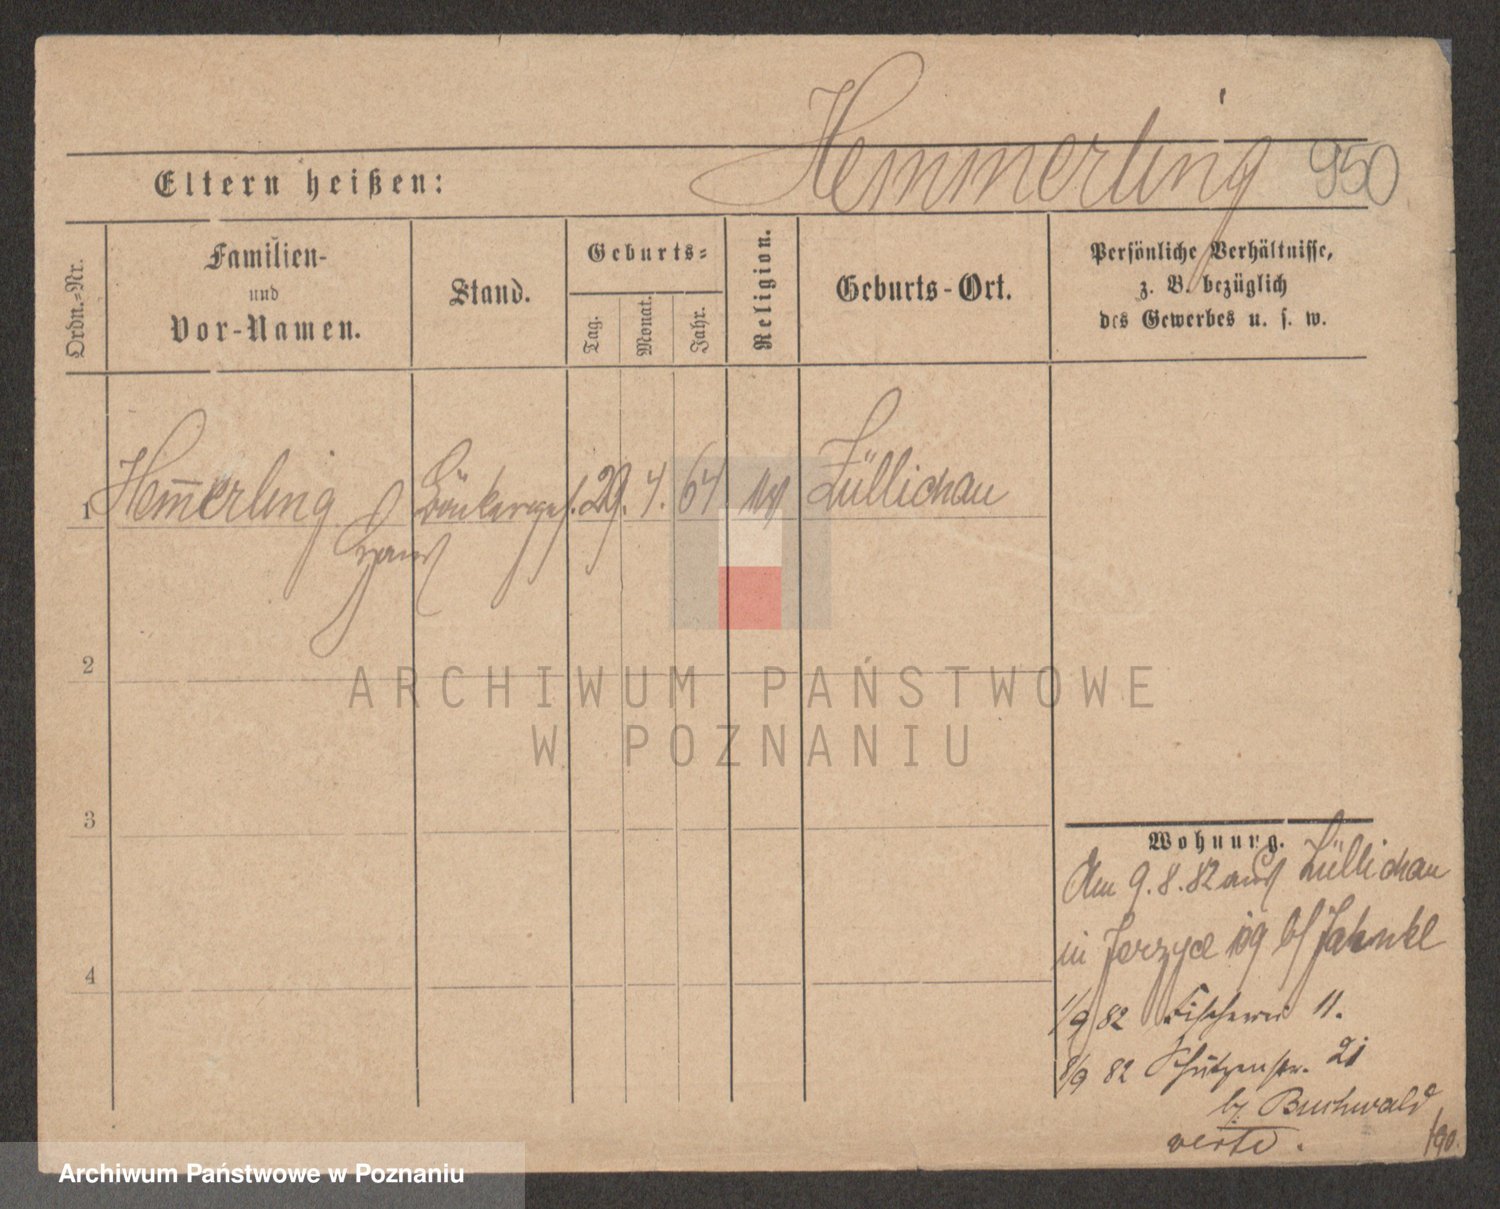 Hemmerling 950
Eltern heißen:
Ordn.=Nr.
Familien-
und
Vor-Namen.
Stand.
Geburts=
Tag.
Monat.
Jahr.
Religion.
Geburts-Ort.
Persönliche Verhältnisse,
z. B. bezüglich
des Gewerbes u. s. w.
1 Hem̅erling 29. 4. 64 Züllichau
2
3
4
Wohnung.
Am 9.8.82 aus Züllichau
in Jerzyce 19 b/ Jahnke
1/9 82 Fischerei 11.
8/9 82 Schützenstr. 21
b/ Buchwald
verte.
/90.
ARCHIWUM PAŃSTWOWE
W POZNANIU
Archiwum Państwowe w Poznaniu